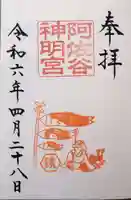 奉拝
阿佐谷
神明宮
令和六年四月二十八日